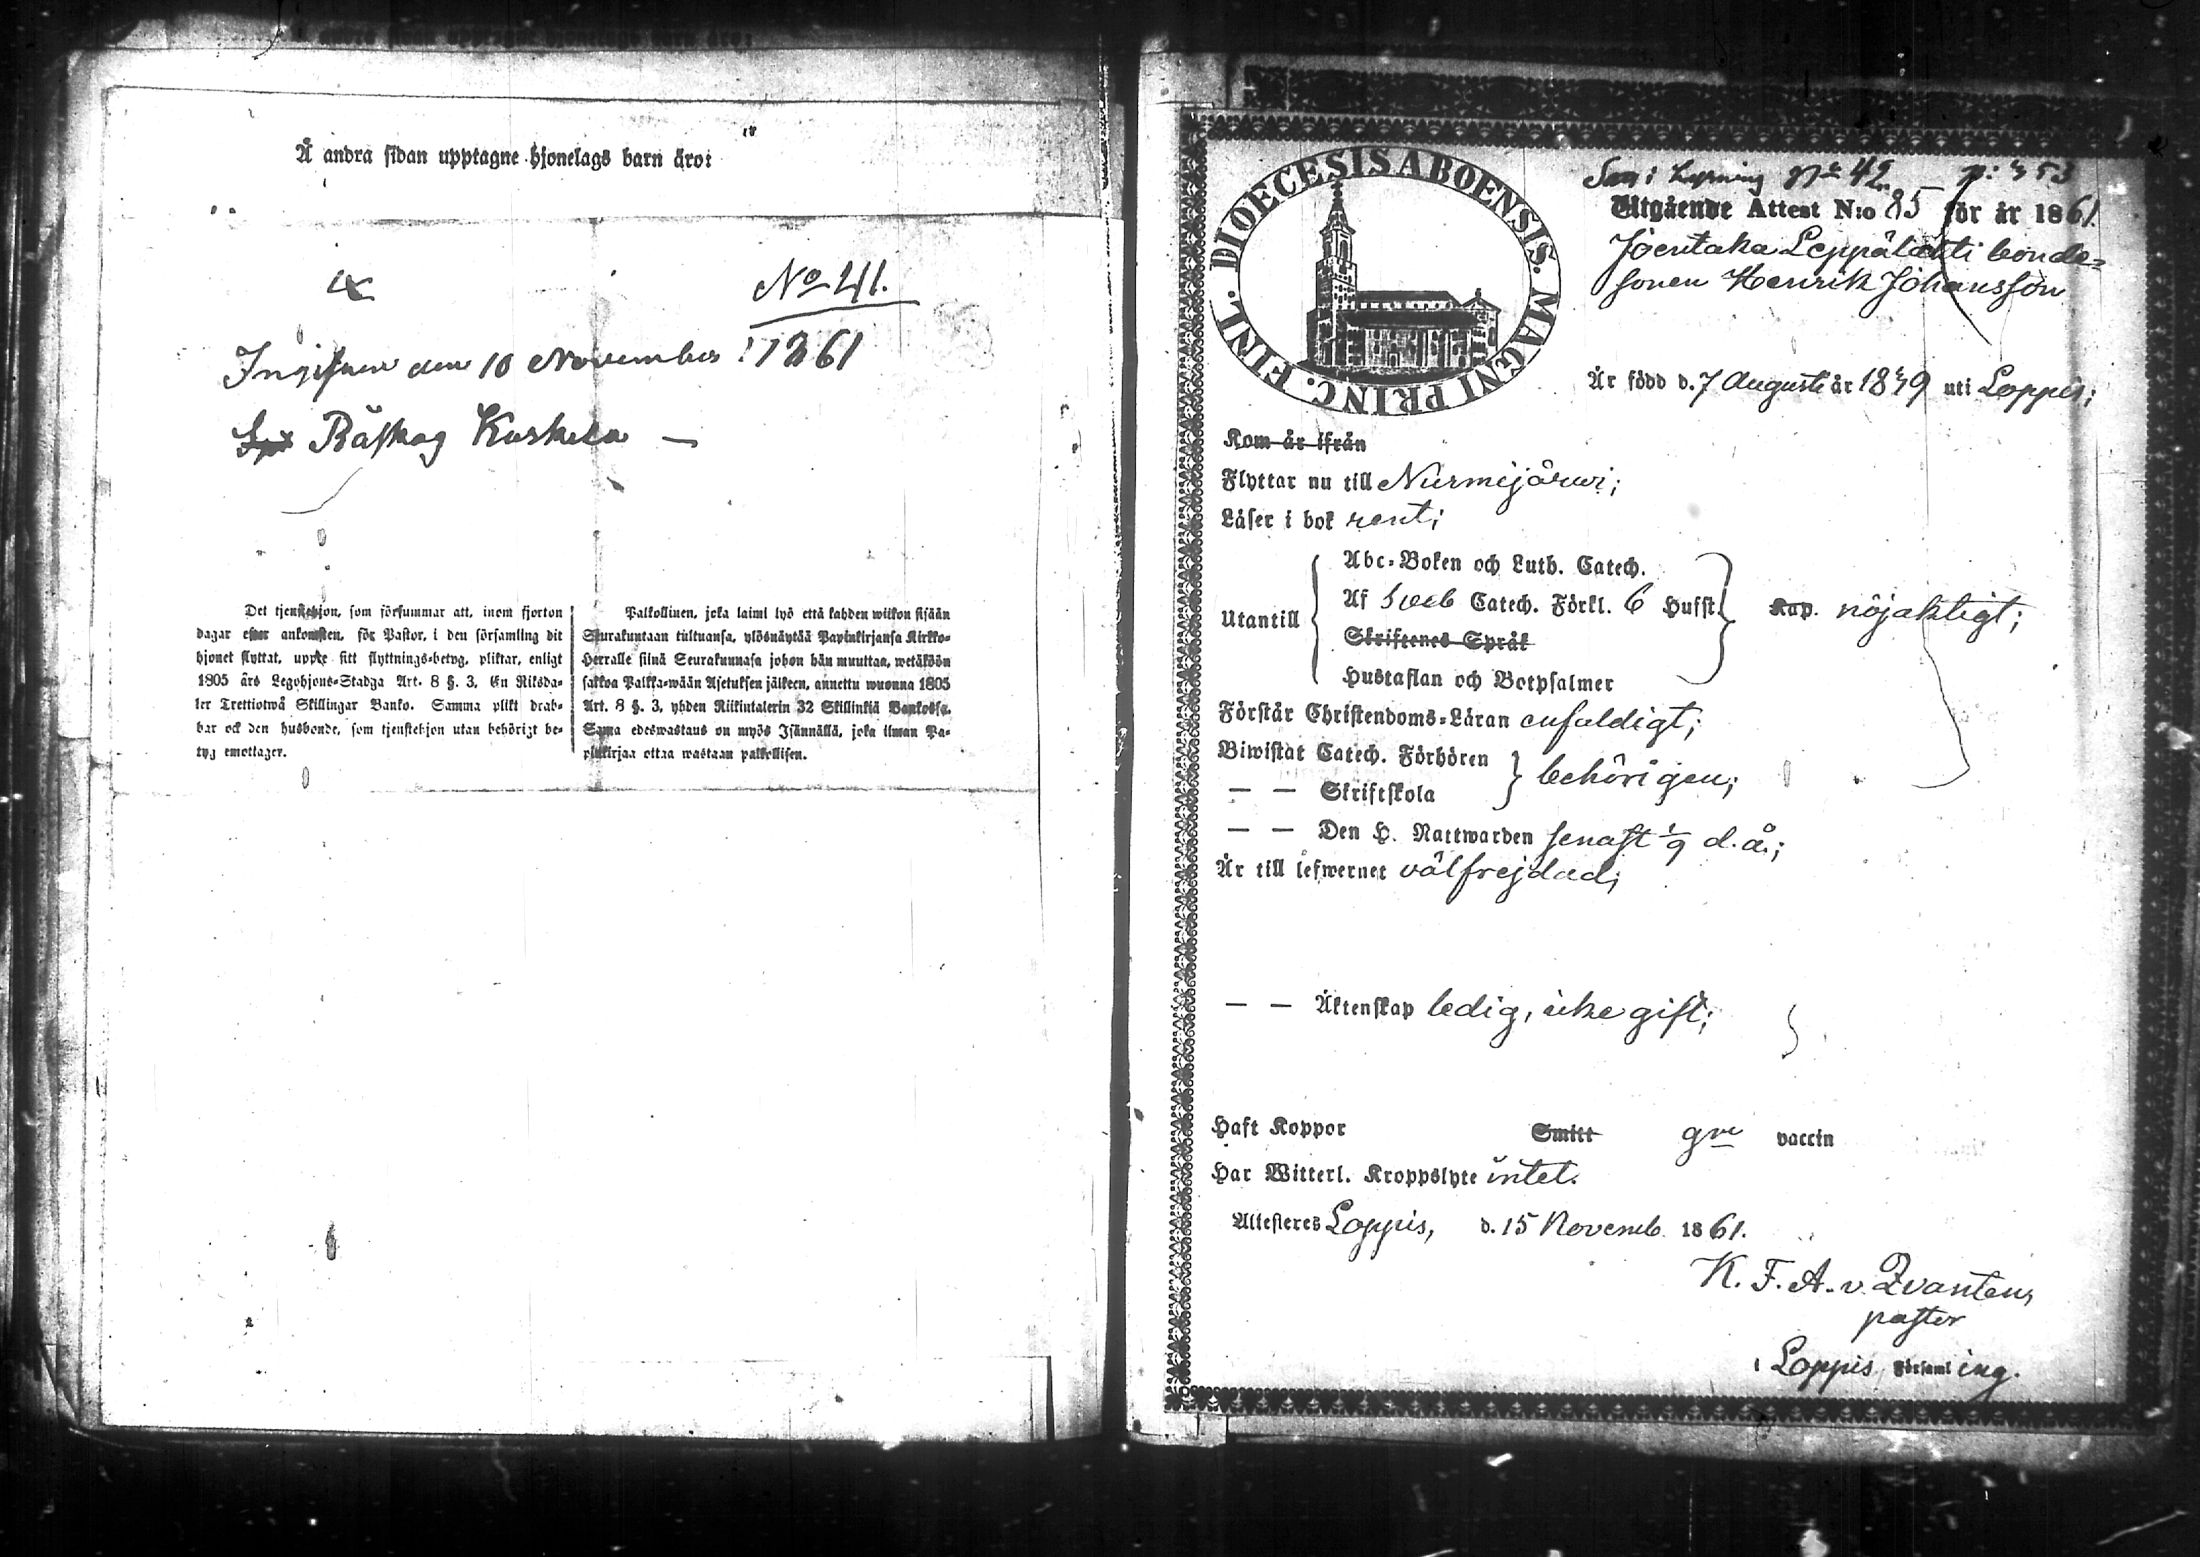 Å andra sidan upptagne hjonelags barn äro:
No 41.
den 10 November 1861
Råskog Kuskela —
Det tjenstehjon, som försummar att, inom fjorton
dagar efter ankomsten, för Pastor, i den församling dit
hjonet flyttat, uppte sitt flyttnings-betyg, pliktar, enligt
1805 års Legohjons-Stadga Art. 8 §. 3, En Riksda-
ler Trettiotwå Skillingar Banko. Samma plikt drab-
bar ock den husbonde, som tjenstehjon utan behörigt be-
tyg emottager.
Palkollinen, joka laimi lyö että kahden wiikon sisään
Seurakuntaan tultuansa, ylösnäyttää Papinkirjansa Kirkko-
Herralle siinä Seurakunnasa johon hän muuttaa, wetäköön
sakkoa Palkka-wään Asetuksen jälkeen, annettu wuonna 1805
Art. 8 §. 3, yhden Riikintalerin 32 Skillinkiä Bankossa.
Sama edeswastaus on myös Isännällä, joka ilman Pa-
pinkirjaa ottaa wastaan palkollisen.
DIOECESIS ABOENSIS. MAGNI PRINC. FINL.
42 p: 353
Utgående Attest N:o 85 för år 1861.
Joentaka Leppälahti bonde-
sonen Henrik Johansson
Är född d. 7 Augusti år 1839 uti Loppis;
Kom år ifrån
Flyttar nu till Nurmijärwi;
Läser i bok rent;
Utantill
Abc-Boken och Luth. Catech.
Af Sveb Catech. Förkl. 6 Hufst.
Skriftenes Språk
Hustaflan och Botpsalmer
Kap. nöjaktigt;
Förstår Christendoms-Läran enfaldigt;
Biwistat Catech. Förhören
— — Skriftskola
behörigen;
— — Den H. Nattwarden senast 1/9 d. å.;
Är till lefwernet välfrejdad;
— — Äktenskap ledig, icke gift;
Haft Koppor Smitt vaccin
Har Witterl. Kroppslyte intet.
Attesteres Loppis, d. 15 Novemb. 1861.
K. F. A. v. Zvantens
pastor
i Loppis Församling.